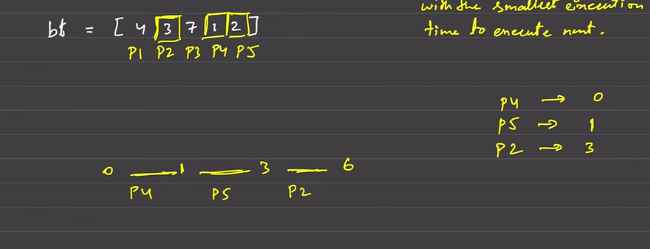 with the smallest execution
time to execute next.
bt = [ 4 3 7 1 2 ]
P1 P2 P3 P4 P5
P4 → 0
P5 → 1
P2 → 3
0 1 3 6
P4 P5 P2